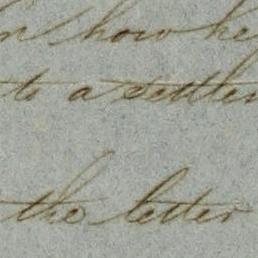 how he
to a settle
the letter